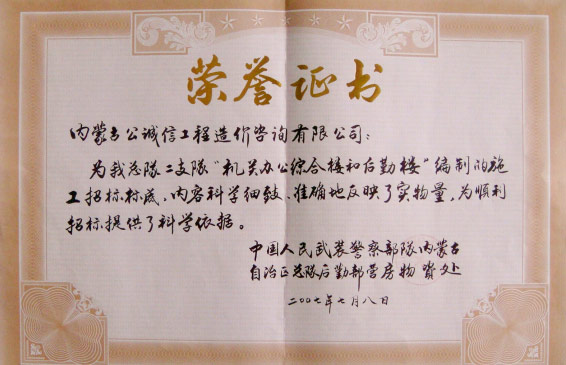 荣誉证书
内蒙古公诚信工程造价咨询有限公司:
为我总队二支队“机关办公综合楼和后勤楼”编制的施
工招标标底,内容科学细致、准确地反映了实物量,为顺利
招标提供了科学依据。
中国人民武装警察部队内蒙古
自治区总队后勤部营房物资处
二00七年七月八日